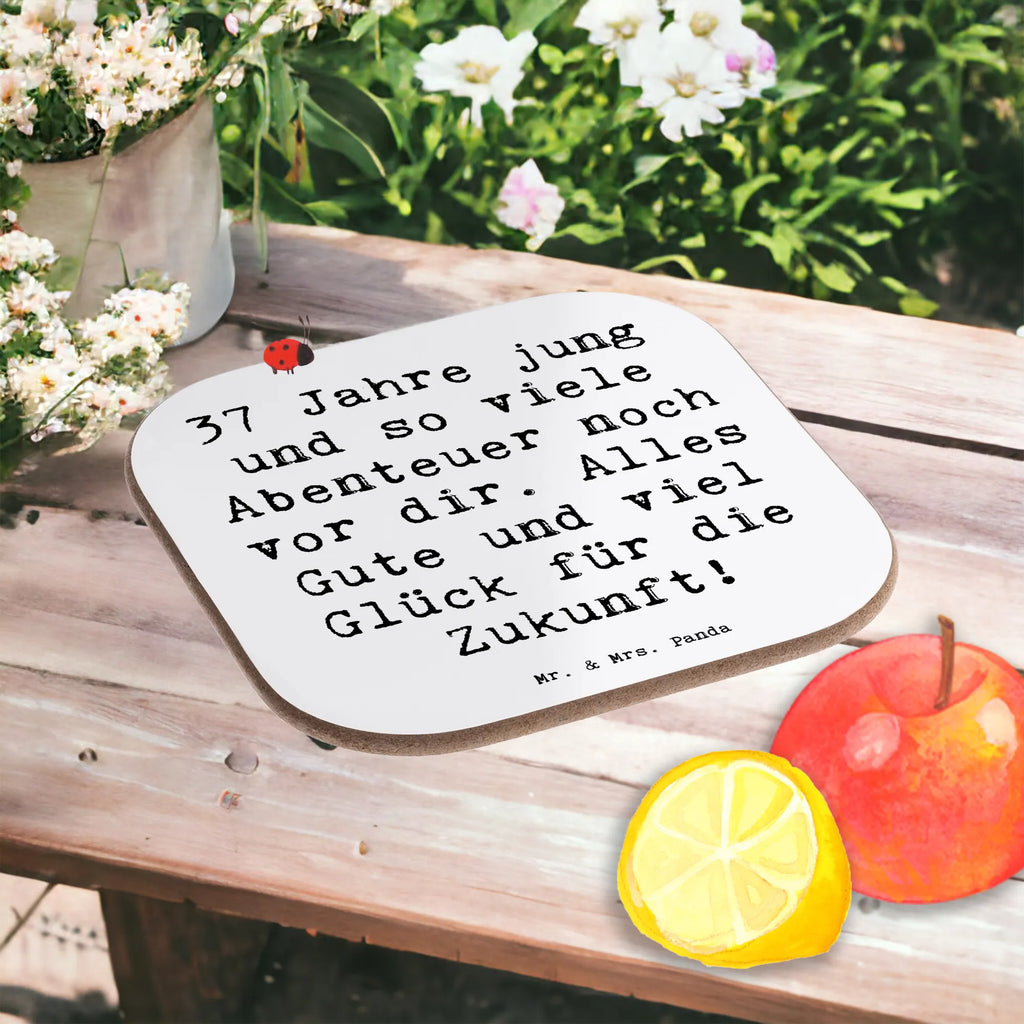 37 Jahre jung
und so viele
Abenteuer noch
vor dir. Alles
Gute und viel
Glück für die
Zukunft!
Mr. & Mrs. Panda